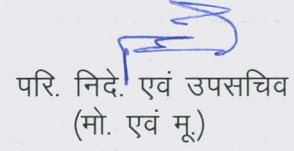 परि. निदे. एवं उपसचिव
(मो. एवं मू.)